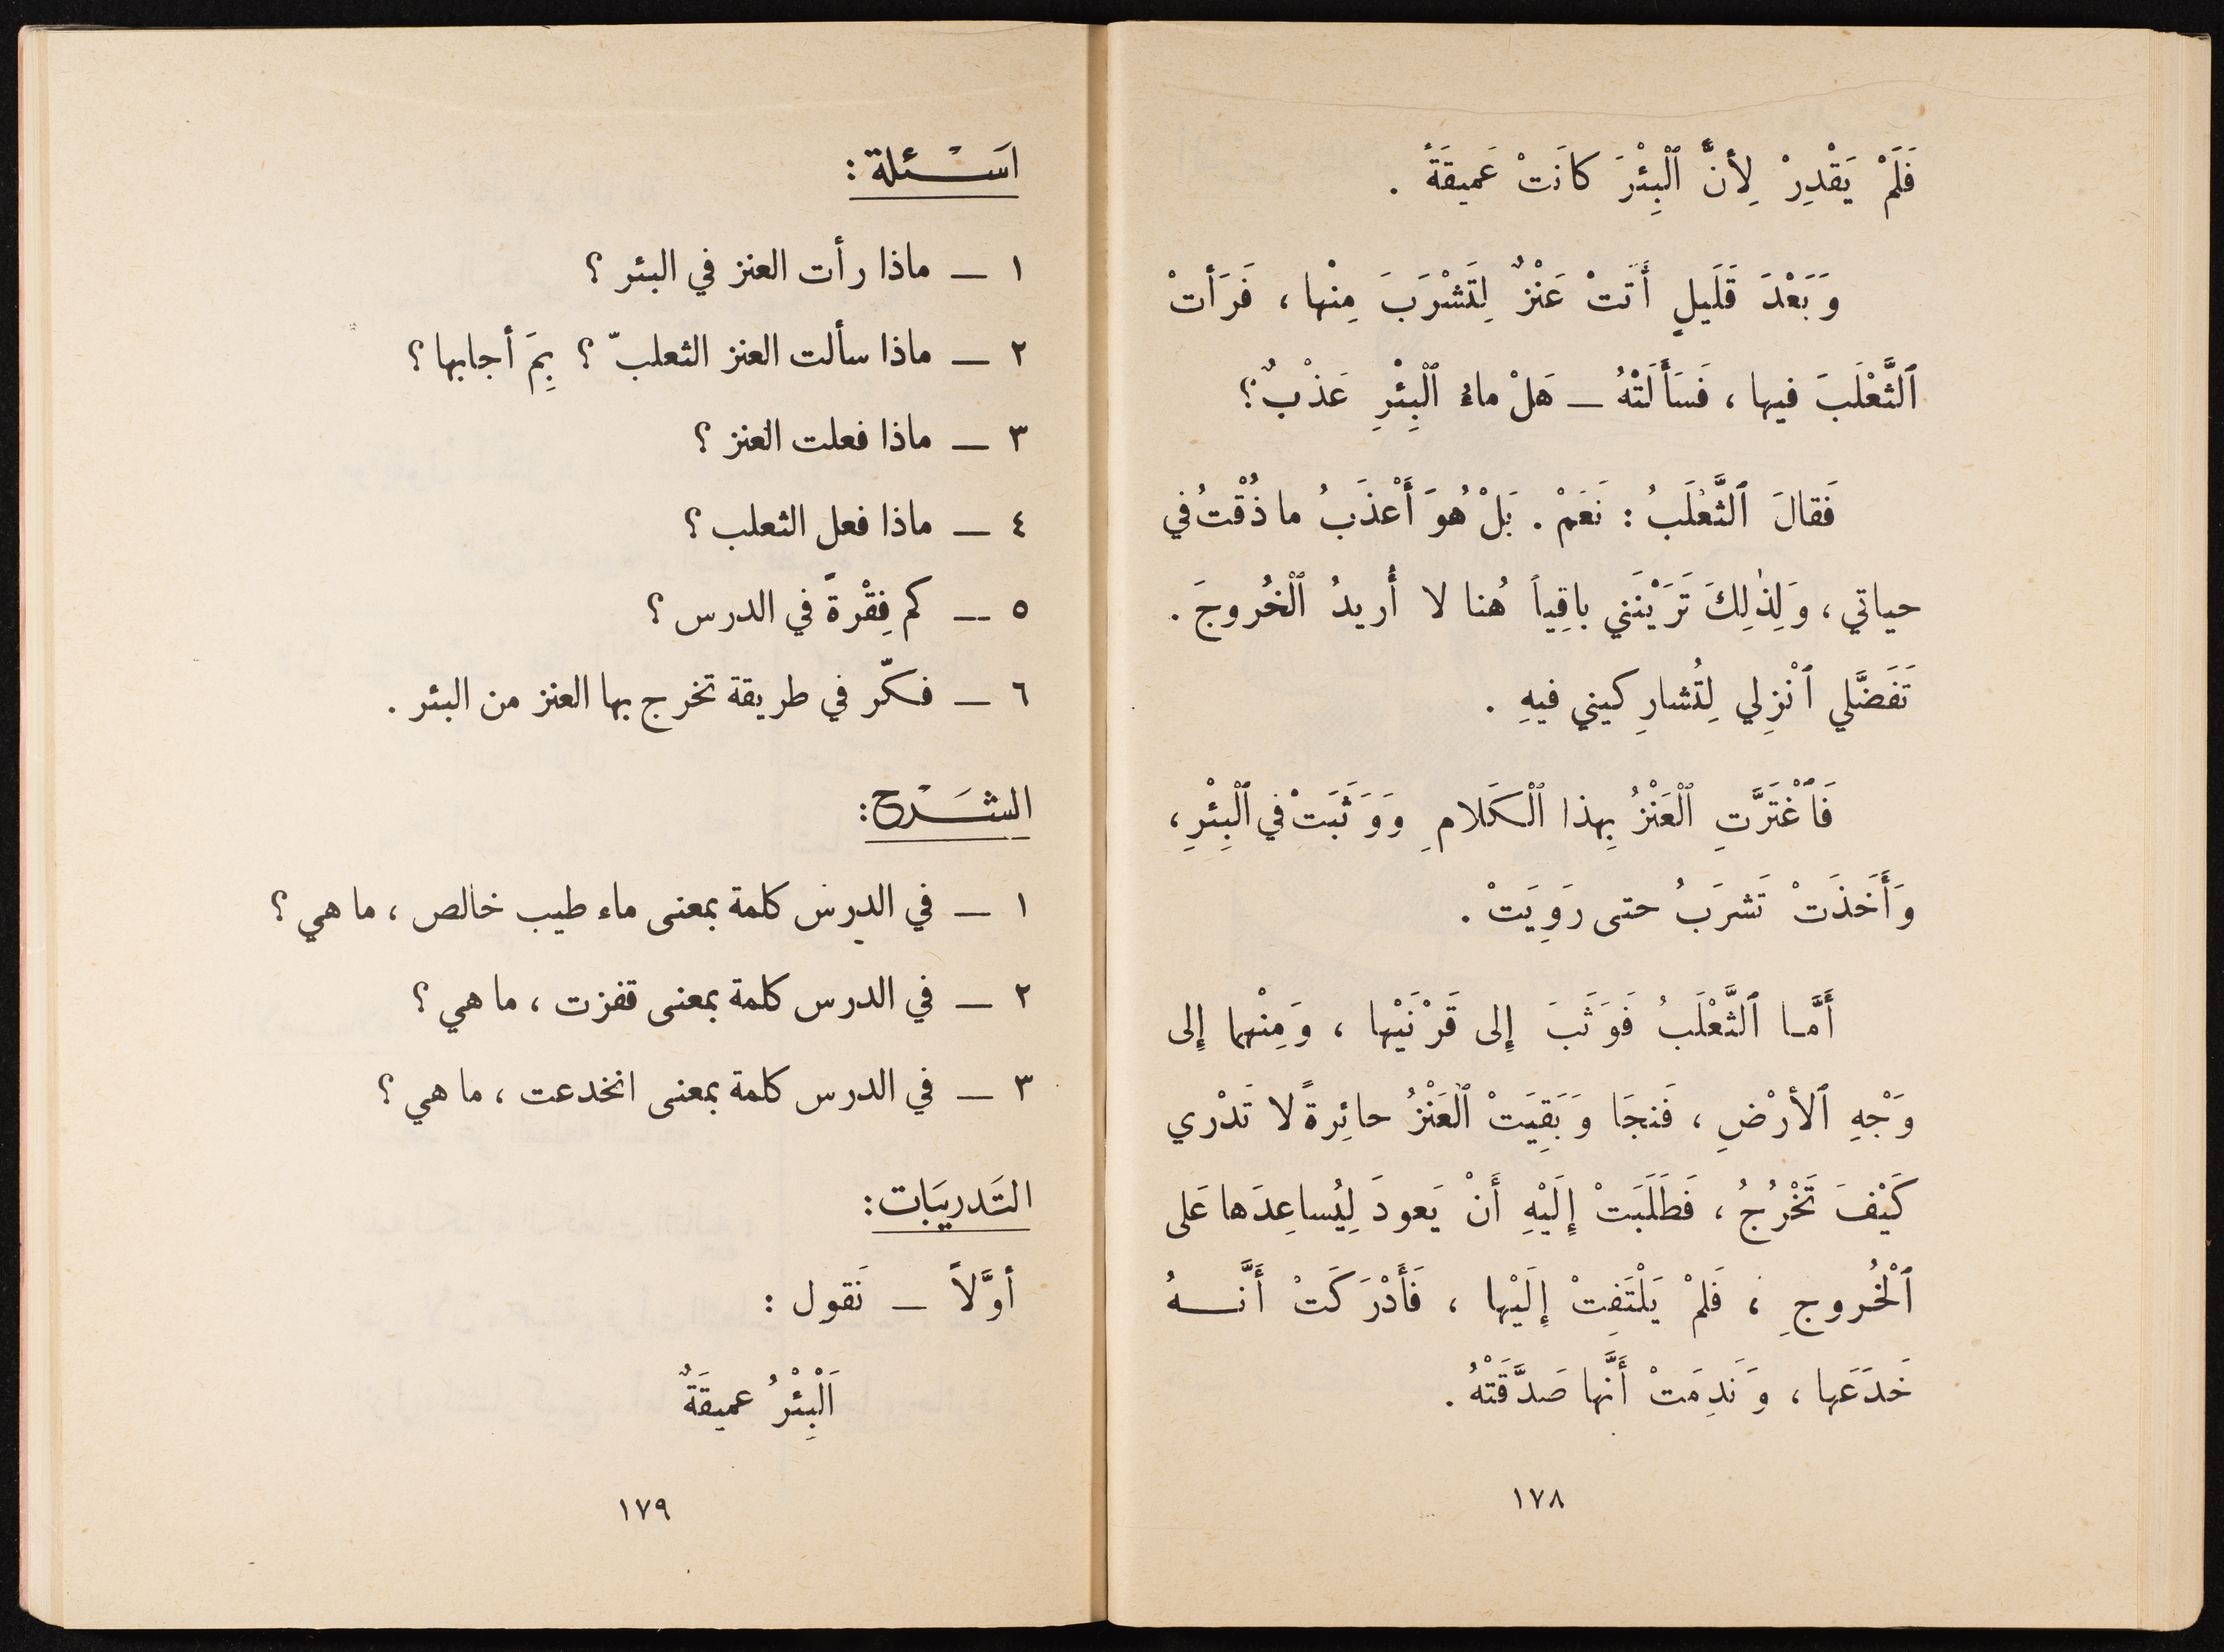 فَلَمْ يَقْدِرْ لِأَنَّ ٱلْبِئْرَ كانَتْ عَميقَةً .
وَبَعْدَ قَلَيلٍ أَتَتْ عَنْزٌ لِتَشْرَبَ مِنْها ، فَرَأَتْ
ٱلثَّعْلَبَ فيها ، فَسَأَلَتْهُ ــ هَلْ ماءُ ٱلْبِئْرِ عَذْبٌ ؟
فَقالَ ٱلثَّعْلَبُ : نَعَمْ . بَلْ هُوَ أَعْذَبُ ما ذُقْتُ في
حياتي ، وَلِذٰلِكَ تَرَيْنَني باقِياً هُنا لا أُريدُ ٱلْخُروجَ .
تَفَضَّلي ٱنْزِلي لِتُشارِكيني فيهِ .
فَٱغْتَرَّتِ ٱلْعَنْزُ بِهذا ٱلْكَلامِ وَوَثَبَتْ في ٱلْبِئْرِ ،
وَأَخَذَتْ تَشرَبُ حتى رَوِيَتْ .
أَمَّا ٱلثَّعْلَبُ فَوَثَبَ إِلى قَرْنَيْها ، وَمِنْهما إِلى
وَجْهِ ٱلأرْضِ ، فَنجَا وَبَقِيَتْ ٱلْعَنْزُ حائِرةً لا تَدْري
كَيْفَ تَخْرُجُ ، فَطَلَبَتْ إِلَيْهِ أَنْ يَعودَ لِيُساعِدَها عَلى
ٱلْخُروجِ ، فَلَمْ يَلْتَفِتْ إِلَيْها ، فَأَدْرَكَتْ أَنَّهُ
خَدَعَها ، وَنَدِمَتْ أَنَّها صَدَّقَتْهُ .
١٧٨
اَسْئلة :
١ ــ ماذا رأت العنز في البئر ؟
٢ ــ ماذا سألت العنز الثعلبّ ؟ بِمَ أجابها ؟
٣ ــ ماذا فعلت العنز ؟
٤ ــ ماذا فعل الثعلب ؟
٥ ــ كم فِقْرةً في الدرس ؟
٦ ــ فكّر في طريقة تخرج بها العنز من البئر .
الشَرْح :
١ ــ في الدرس كلمة بمعنى ماء طيب خالص ، ما هي ؟
٢ ــ في الدرس كلمة بمعنى قفزت ، ما هي ؟
٣ ــ في الدرس كلمة بمعنى انخدعت ، ما هي ؟
التَدريَبات :
أوَّلاً ــ نَقول :
اَلْبِئْرُ عميقَةٌ
١٧٩